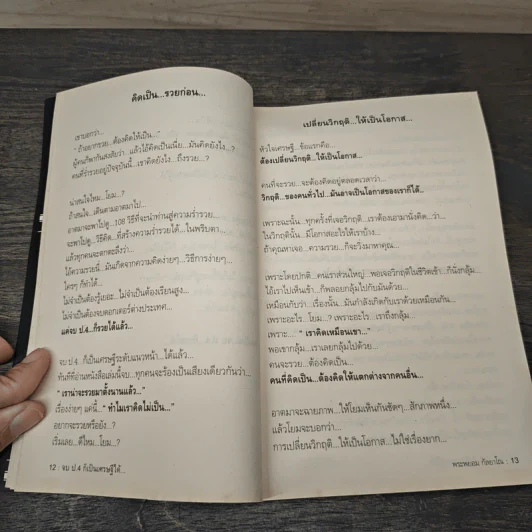 คิดเป็น...รวยก่อน...
เขาบอกว่า...
" ถ้าอยากรวย...ต้องคิดให้เป็น..."
ผู้คนก็พากันสงสัยว่า...แล้วไอ้คิดเป็นเนี่ย...มันคิดยังไง...?
คนที่ร่ำรวยอยู่ปัจจุบันนี้...เขาคิดยังไง...ถึงรวย...?
น่าสนใจไหม...โยม...?
ถ้าสนใจ...เดินตามอาตมามา...
อาตมาจะพาไปดู...108 วิธีที่จะนำท่านสู่ความร่ำรวย...
จะพาไปดู...วิธีคิด...ที่สร้างความร่ำรวยได้...ในพริบตา...
แล้วทุกคนจะตกตะลึงว่า...
ไอ้ความรวยนี่...มันเกิดจากความคิดง่ายๆ...วิธีการง่ายๆ...
ใครๆ ก็ทำได้...
ไม่จำเป็นต้องรู้เยอะ...ไม่จำเป็นต้องเรียนสูง...
ไม่จำเป็นต้องจบดอกเตอร์ต่างประเทศ...
แค่จบ ป.4...ก็รวยได้แล้ว...
จบ ป.4...ก็เป็นเศรษฐีระดับแนวหน้า...ได้แล้ว...
ทันทีที่อ่านหนังสือเล่มนี้จบ...ทุกคนจะร้องเป็นเสียงเดียวกันว่า...
" เราน่าจะรวยมาตั้งนานแล้ว..."
เรื่องง่ายๆ แค่นี้..." ทำไมเราคิดไม่เป็น..."
อยากจะรวยหรือยัง...?
เริ่มเลย...ดีไหม...โยม...?
12 : จบ ป.4 ก็เป็นเศรษฐีได้...
เปลี่ยนวิกฤติ...ให้เป็นโอกาส...
หัวใจเศรษฐี...ข้อแรกคือ...
ต้องเปลี่ยนวิกฤติ...ให้เป็นโอกาส...
คนที่จะรวย...จะต้องคิดอยู่ตลอดเวลาว่า...
วิกฤติ...ของคนทั่วไป...มันอาจเป็นโอกาสของเราก็ได้...
เพราะฉะนั้น...ทุกครั้งที่เจอวิกฤติ...เราต้องเอามานั่งคิด...ว่า...
ในวิกฤตินั้น...มีโอกาสอะไรให้เราบ้าง...
ถ้าคุณหาเจอ...ความรวย...ก็จะวิ่งมาหาคุณ...
เพราะโดยปกติ...คนเราส่วนใหญ่...พอเจอวิกฤติในชีวิตเข้า...ก็นั่งกลุ้ม...
ไอ้เราไปเห็นเข้า...ก็พลอยกลุ้มไปกับมันด้วย...
เหมือนกับว่า...เรื่องนั้น...มันกำลังเกิดกับเราด้วยเหมือนกัน...
เพราะอะไร...โยม...? เพราะอะไร...เราถึงกลุ้ม...
เพราะ...." เราคิดเหมือนเขา..."
พอเขากลุ้ม...เราเลยกลุ้มไปด้วย...
คนจะรวย...ต้องคิดเป็น...
คนที่คิดเป็น...ต้องคิดให้แตกต่างจากคนอื่น...
อาตมาจะฉายภาพ...ให้โยมเห็นกันชัดๆ...สักภาพหนึ่ง...
แล้วโยมจะบอกว่า...
การเปลี่ยนวิกฤติ...ให้เป็นโอกาส...ไม่ใช่เรื่องยาก...
พระพยอม กัลยาโณ : 13